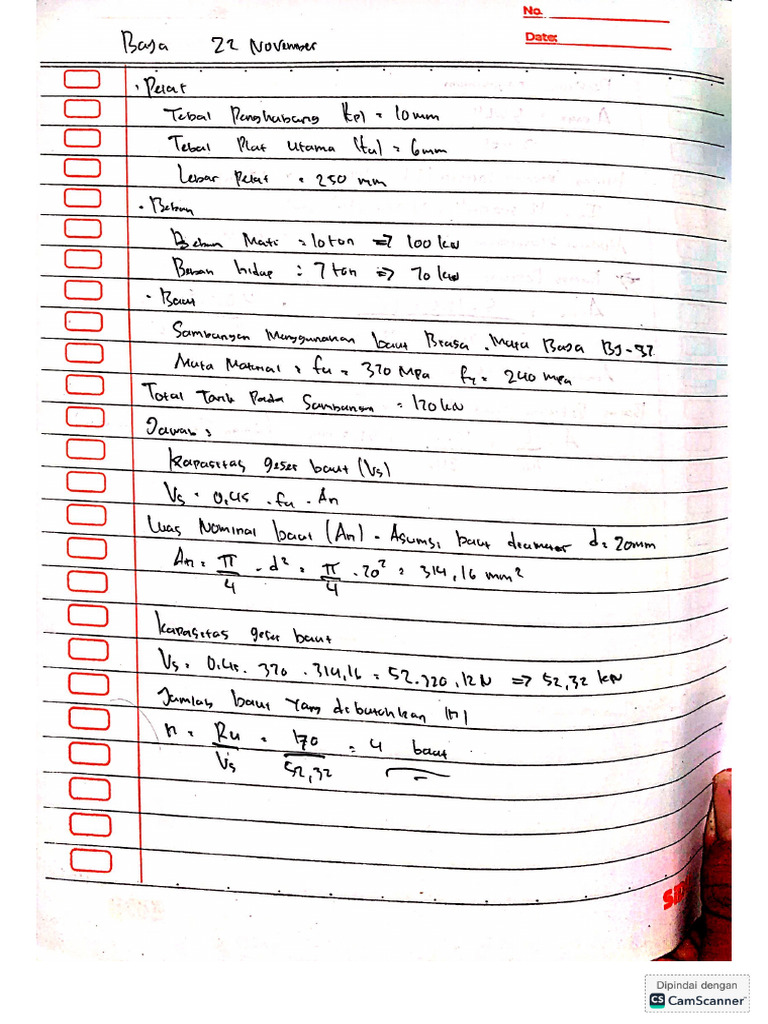 No.
Date:
Baja 22 November
• Pelat
Tebal Penghubung (tp) = 10 mm
Tebal Plat Utama (tu) = 6 mm
Lebar Pelat = 250 mm
• Beban
Beban Mati = 10 ton => 100 kN
Beban hidup : 7 ton => 70 kN
• Baut
Sambungan Menggunakan baut Biasa. Mutu Baja BJ-37
Mutu Material = fu = 370 MPa fy = 240 mpa
Total Tarik Pada Sambungan = 170 kN
Jawab :
Kapasitas geser baut (Vs)
Vs = 0,45 . fu . An
Luas Nominal baut (An) - Asumsi baut diameter d = 20mm
An = π/4 . d² = π/4 . 20² = 314,16 mm²
Kapasitas geser baut
Vs = 0,45 . 370 . 314,16 = 52.320,12 N => 52,32 kN
Jumlah baut Yang dibutuhkan (n)
n = Ru/Vs = 170/52,32 = 4 baut
Dipindai dengan
CS CamScanner